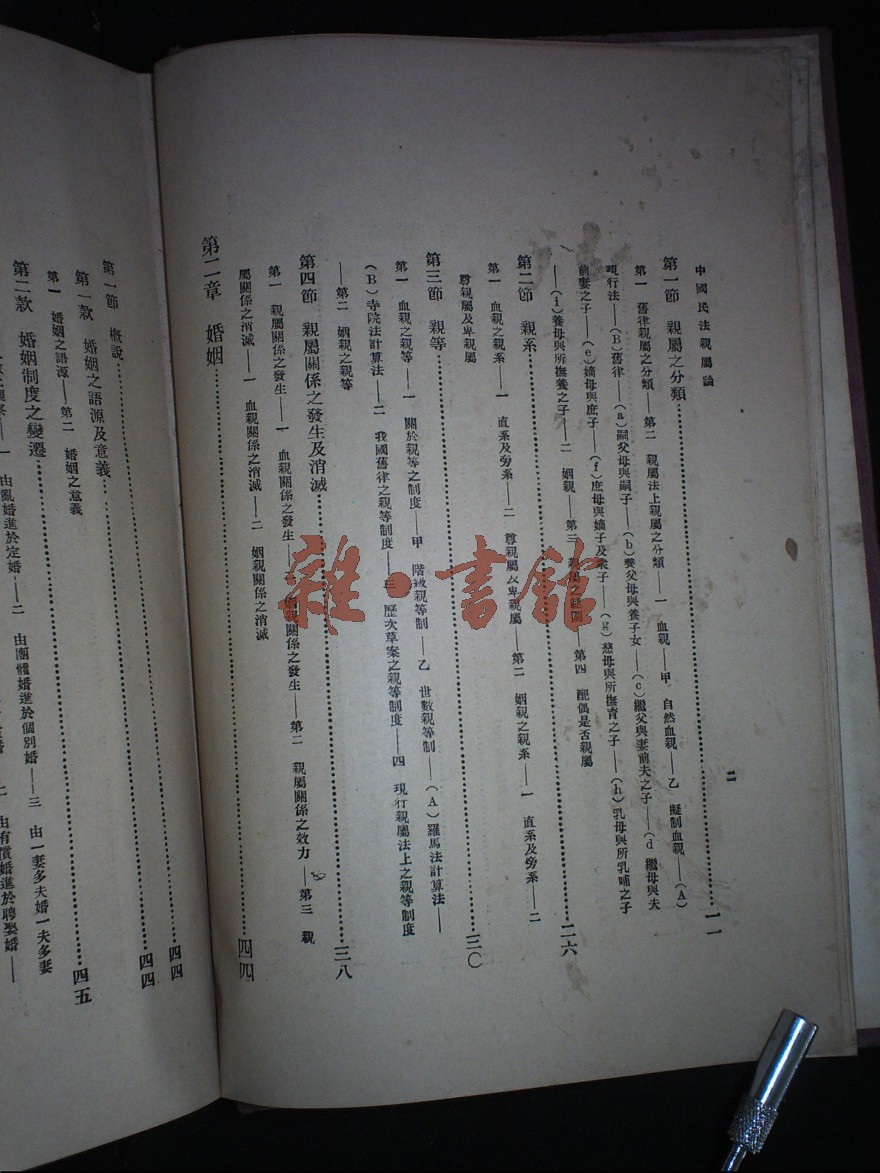 中國民法親屬論
二
第一節 親屬之分類……一一
第一 舊律親屬之分類——第二 親屬法上親屬之分類——一 血親——甲 自然血親——乙 擬制血親——(A)
現行法——(B)舊律——(a)嗣父母與嗣子——(b)養父母與養子女——(c)繼父與妻前夫之子——(d 繼母與夫
前妻之子——(e)嫡母與庶子——(f)庶母與嫡子及衆子——(g)慈母與所撫育之子——(h)乳母與所乳哺之子
——(i)養母與所撫養之子——二 姻親——第三 親屬之範圍——第四 配偶是否親屬
第二節 親系……二六
第一 血親之親系——一 直系及旁系——二 尊親屬及卑親屬——第二 姻親之親系——一 直系及旁系——二
尊親屬及卑親屬
第三節 親等……三〇
第一 血親之親等——一 關於親等之制度——甲 階級親等制——乙 世數親等制——(A)羅馬法計算法——
(B)寺院法計算法——二 我國舊律之親等制度——三 歷次草案之親等制度——四 現行親屬法上之親等制度
——第二 姻親之親等
第四節 親屬關係之發生及消滅……三八
第一 親屬關係之發生——一 血親關係之發生——二 姻親關係之發生——第二 親屬關係之效力——第三 親
屬關係之消滅——一 血親關係之消滅——二 姻親關係之消滅
第二章 婚姻……四四
第一節 概說……四四
第一款 婚姻之語源及意義……四四
第一 婚姻之語源——第二 婚姻之意義
第二款 婚姻制度之變遷……四五
一 由亂婚進於定婚——二 由團體婚進於個別婚——三 由一妻多夫婚一夫多妻
由有償婚進於聘娶婚——
雜·書館